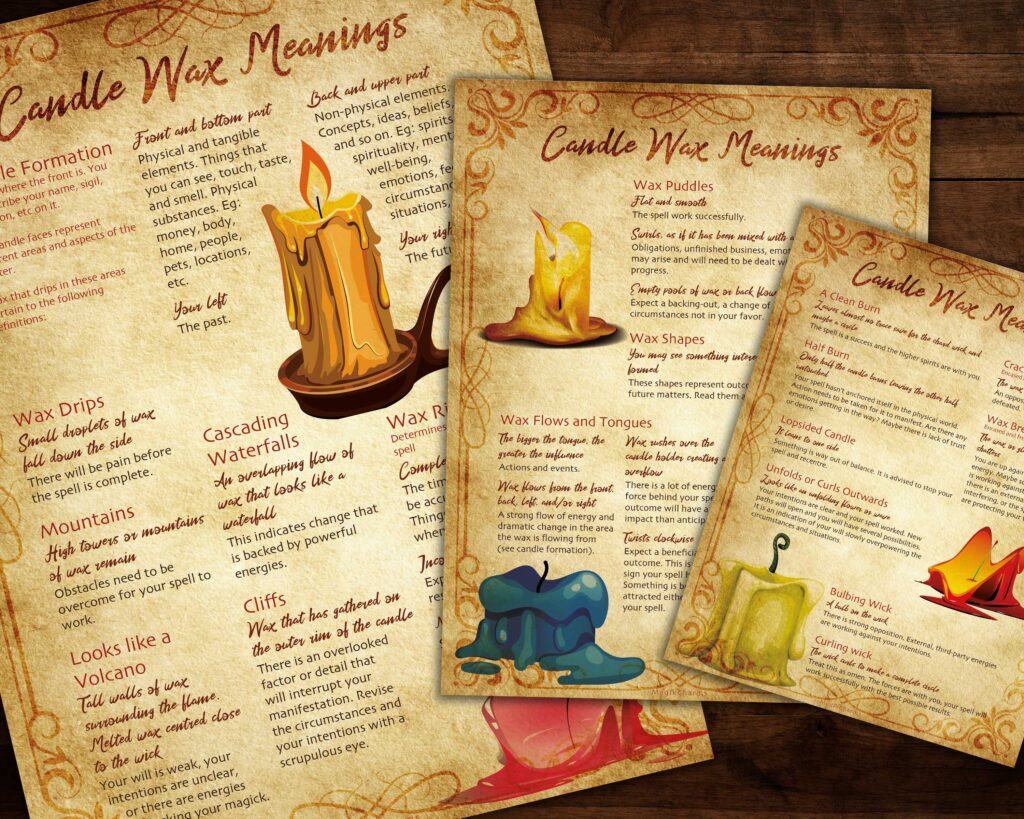 Candle Wax Meanings
le Formation
where the front is. You
cribe your name, sigil,
on, etc on it.
andle faces represent
rent areas and aspects of the
ter.
x that drips in these areas
rtain to the following
efinitions:
Front and bottom part
Physical and tangible
elements. Things that
you can see, touch, taste,
and smell. Physical
substances. Eg:
money, body,
home, people,
pets, locations,
etc.
Your left
The past.
Back and upper part
Non-physical elements.
Concepts, ideas, beliefs,
and so on. Eg: spirits
spirituality, ment
well-being,
emotions, fe
circumstan
situations,
Your righ
The futu
Wax Drips
Small droplets of wax
fall down the side
There will be pain before
the spell is complete.
Mountains
High towers or mountains
of wax remain
Obstacles need to be
overcome for your spell to
work.
Looks like a
Volcano
Tall walls of wax
surrounding the flame.
Melted wax centred close
to the wick
Your will is weak, your
intentions are unclear,
or there are energies
king your magick.
Cascading
Waterfalls
An overlapping flow of
wax that looks like a
waterfall
This indicates change that
is backed by powerful
energies.
Cliffs
Wax that has gathered on
the outer rim of the candle
There is an overlooked
factor or detail that
will interrupt your
manifestation. Revise
the circumstances and
your intentions with a
scrupulous eye.
Wax Ri
Determines
spell
Comple
The tim
be accu
Things
when
Inco
Exp
res
Candle Wax Meanings
Wax Puddles
Flat and smooth
The spell work successfully.
Swirls, as if it has been mixed with a
Obligations, unfinished business, emot
may arise and will need to be dealt w
progress.
Empty pools of wax or back flow
Expect a backing-out, a change of
circumstances not in your favor.
Wax Shapes
You may see something intere
formed
These shapes represent outco
future matters. Read them a
Wax Flows and Tongues
The bigger the tongue, the
greater the influence
Actions and events.
Wax flows from the front,
back, left, and/or right
A strong flow of energy and
dramatic change in the area
the wax is flowing from
(see candle formation).
Wax rushes over the
candle holder creating a
overflow
There is a lot of energ
force behind your spel
outcome will have a
impact than anticip
Twists clockwise
Expect a beneficia
outcome. This is
sign your spell h
Something is b
attracted eithe
your spell.
Candle Wax Mea
A Clean Burn
Leaves almost no trace save for the charred wick and
maybe a circle
The spell is a success and the higher spirits are with you.
Half Burn
Only half the candle burns leaving the other half
untouched
Your spell hasn't anchored itself in the physical world.
Action needs to be taken for it to manifest. Are there any
emotions getting in the way? Maybe there is lack of trust
or desire.
Lopsided Candle
It leans to one side
Something is way out of balance. It is advised to stop your
spell and recentre.
Unfolds or Curls Outwards
Looks like an unfolding flower or wave
Your intentions are clear and your spell worked. New
paths will open and you will have several possibilities.
It is an indication of your will slowly overpowering the
circumstances and situations.
Bulbing Wick
A bulb on the wick
There is strong opposition. External, third-party energies
are working against your intentions.
Curling wick
The wick curls to make a complete circle
Treat this as omen. The forces are with you, your spell will
work successfully with the best possible results.
Crac
An oppos
defeated.
Wax Bre
The wax or gl
shatters
You are up agai
energy. Maybe s
is working agains
there is an extern
interfering, or the
are protecting your